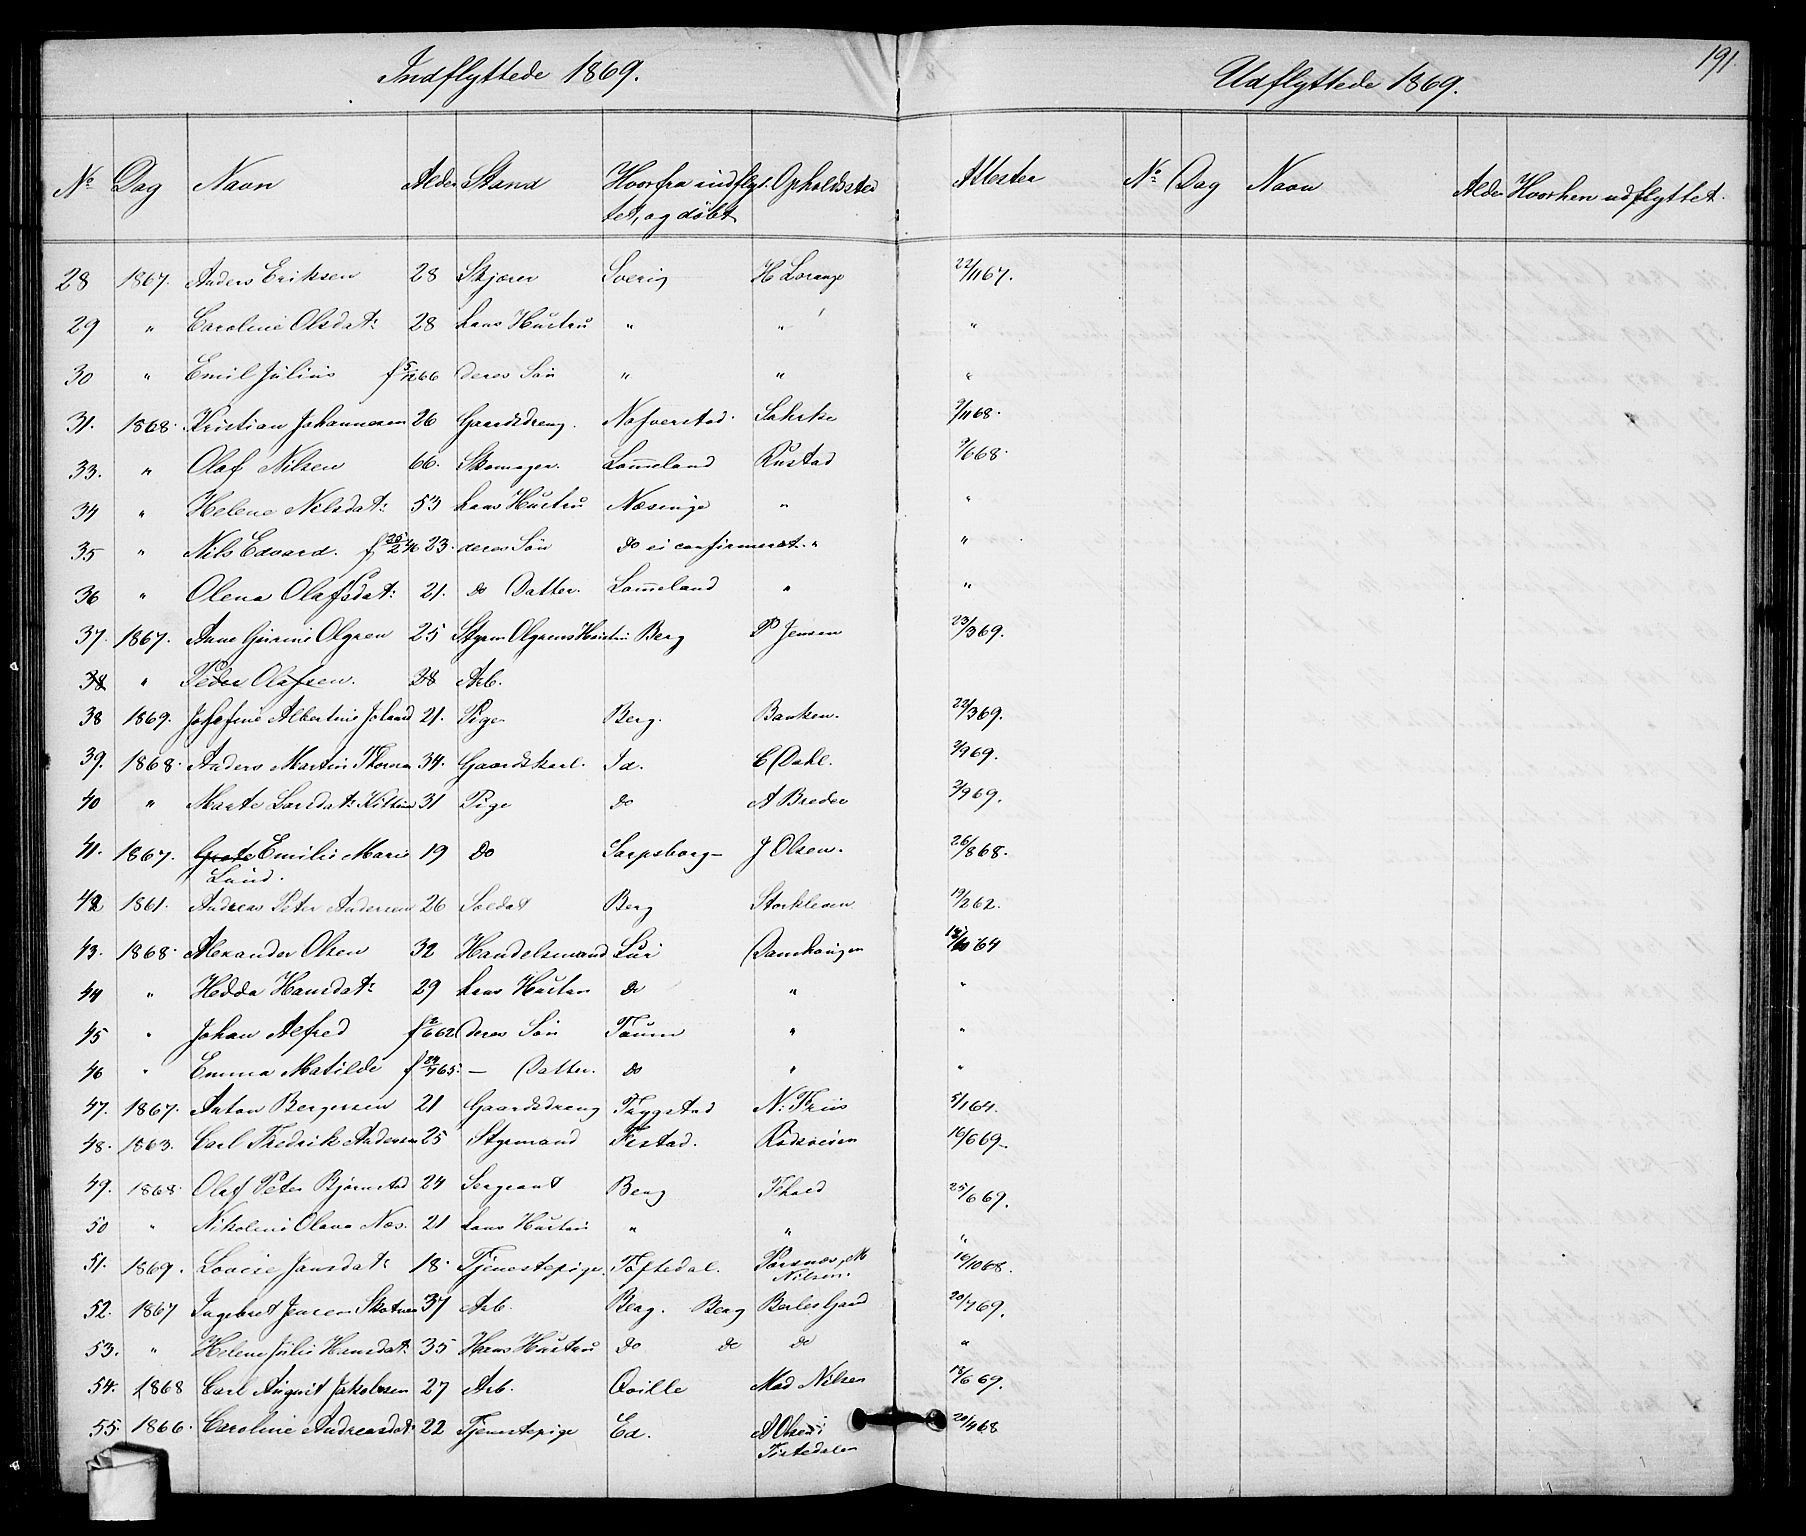 191
Indflyttede 1869.
Udflyttede 1869.
No Dag Navn Alder Stand Hvorfra indflyt- Opholdssted Attester No Dag Navn Alder Hvorhen udflyttet.
tet, og døbt
28 1867. Anders Eriksen 28 Skjærer Sverig H Lorange 22/11 67.
29 " Caroline Olsdat: 28 hans Hustru " " "
30 " Emil Julius f 5/12 66 deres Søn " " "
31. 1868. Kristian Johannesen 26 Gaardsdreng. Nafverstad. 9/11 68.
33. " Olaf Nilsen 66. Skomager. Lom̅eland Rustad 9/6 68.
34 " Helene Nilsdat: 53 hans Hustru Næsinge " "
35 " Nils Edvard. f 25/2 46 23. deres Søn do ei confirmeret. " "
36 " Olena Olafsdat: 21. do Datter. Lom̅eland " "
37. 1867. Anne Gurine Olgren 25 Styrm Olgrens Hustru Berg P Jensen 23/3 69.
38 " Peder Olafsen. 38 Arb.
38 1869. Josefine Albertine 21. Pige Berg. Banken. 23/3 69.
39. 1868. Anders Martin 34. Gaardskarl. Id. C Dahl. 3/9 69.
40 " Marte Larsdat: 31 Pige do A Breder 3/9 69.
41. 1867. Grete Emilie Marie 19 do Sarpsborg J Olsen. 26/8 68.
Lund.
42 1861. Andreas Peter Andersen 26 Soldat Berg Storkleven 19/2 62.
43. 1868. Alexander Olsen 32 Handelsmand Lur Damhaugen 64
44 " Hedda Hansdat: 29 hans Hustru do " "
45 " Johan Alfred f 2/6 62 deres Søn Taum " "
46 " Emma Matilde f 24/7 65. — Datter. do " "
47. 1867. Anton Bergersen 21 Gaardsdreng Trygstad N: Friis 5/1 64.
48. 1863. Carl Fredrik Andersen 25 Styrmand Fistad. Rødsveien 16/6 69.
49. 1868. Olaf Peter Bjørnstad 24 Sergeant Berg 25/6 69.
50 " Nikoline Olava Næs. 21 hans Hustru " " "
51. 1869. Lovise Jansdat: 18. Tjenestepige. Töftedal. M 16/10 68.
Nilsen.
52. 1867 Ingebret Jensen 37 Arb. Berg. Berg 20/7 69.
53. " Helene Julie Hansdat: 35 Hans Hustru do do do "
54. 1868 Carl August Jakobsen 27 Arb. Qville Mad Nilsen 18/6 69.
55. 1866. Caroline Andreasdat: 22 Tjenestepige Ed. A Olsen 20/4 68
Tistedalen